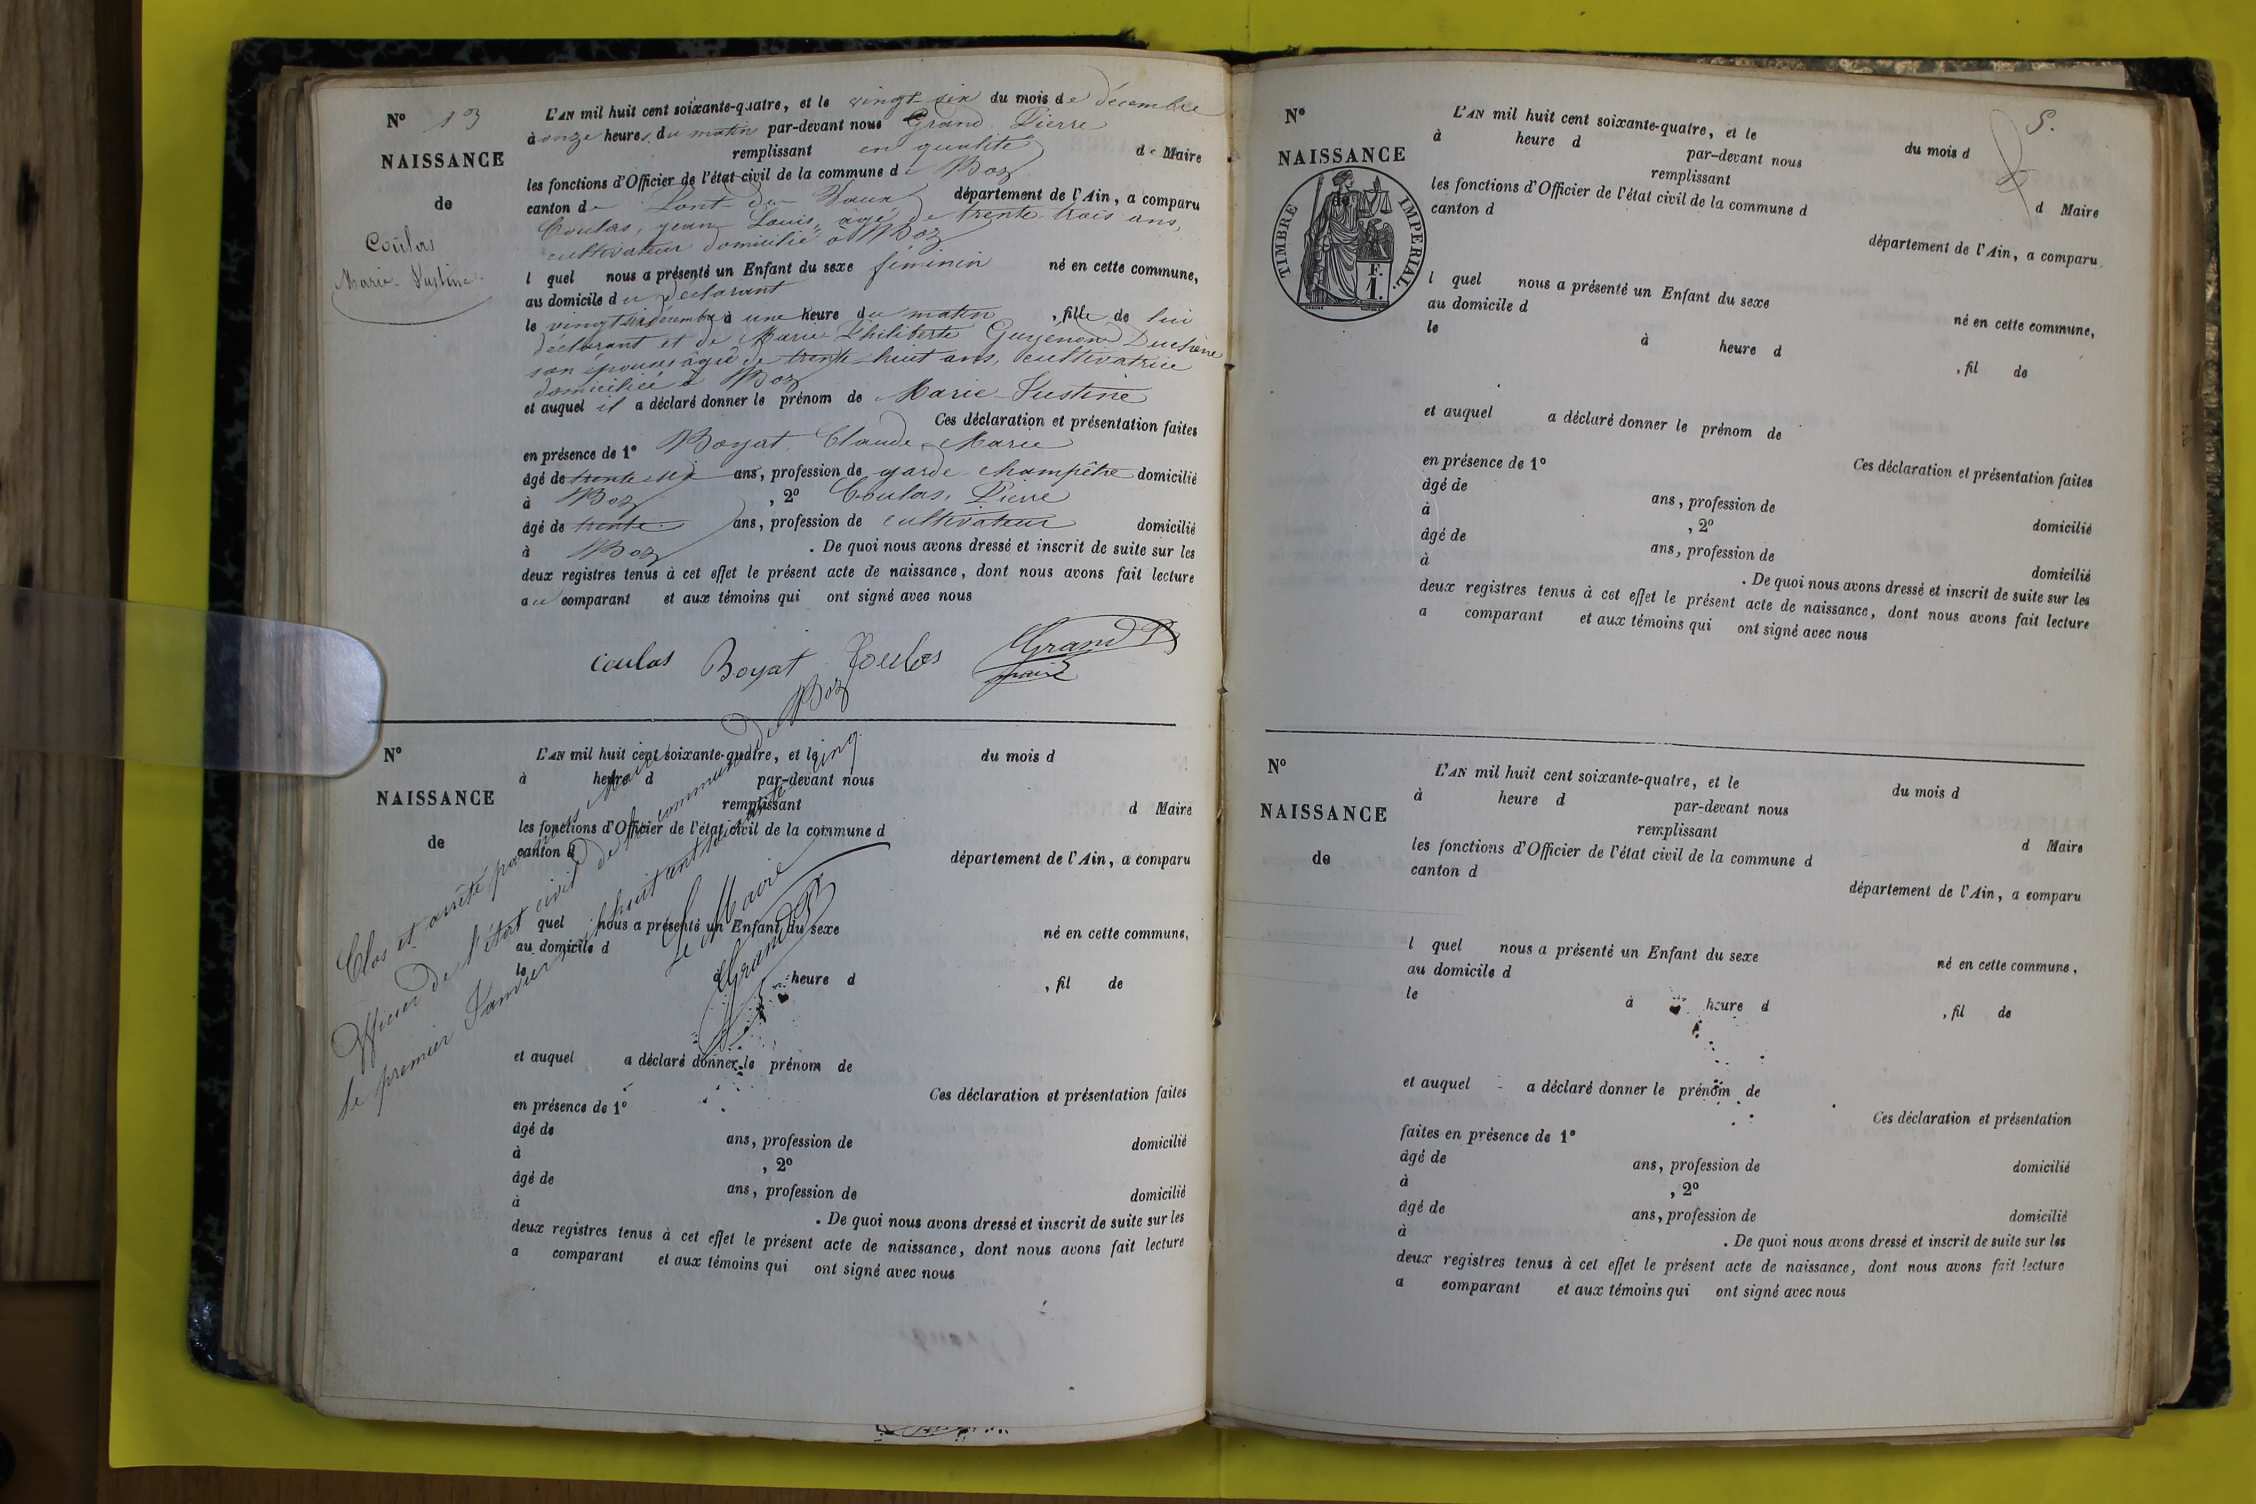 N° 13
NAISSANCE
de
Coulas
Marie-Justine
L'AN mil huit cent soixante-quatre, et le vingt-six du mois de décembre
à onze heures du matin par-devant nous Grand Pierre
remplissant en qualité de Maire
les fonctions d'Officier de l'état civil de la commune de Boz
canton de Pont-de-Vaux département de l'Ain, a comparu
Coulas, Jean Louis, âgé de trente-trois ans,
cultivateur domicilié à Boz
l quel nous a présenté un Enfant du sexe féminin né en cette commune,
au domicile du déclarant
le vingt décembre à une heure du matin, fille de lui
déclarant et de Marie Philiberte Guyenon Duchêne
son épouse âgée de trente-huit ans, cultivatrice
domiciliée à Boz
et auquel il a déclaré donner le prénom de Marie-Justine
Ces déclaration et présentation faites
en présence de 1° Boyat Claude-Marie
âgé de trente six ans, profession de garde-champêtre domicilié
à Boz , 2° Coulas, Pierre
âgé de trente ans, profession de cultivateur domicilié
à Boz . De quoi nous avons dressé et inscrit de suite sur les
deux registres tenus à cet effet le présent acte de naissance, dont nous avons fait lecture
au comparant et aux témoins qui ont signé avec nous
Coulas Boyat Coulas Grand Pre
maire
N°
NAISSANCE
de
L'AN mil huit cent soixante-quatre, et le du mois d
à heure d par-devant nous
remplissant d Maire
les fonctions d'Officier de l'état civil de la commune d
canton d
département de l'Ain, a comparu
quel nous a présenté un Enfant du sexe né en cette commune,
au domicile d
le à heure d , fil de
et auquel a déclaré donner le prénom de
Ces déclaration et présentation faites
en présence de 1°
âgé de ans, profession de domicilié
à , 2°
âgé de ans, profession de domicilié
à . De quoi nous avons dressé et inscrit de suite sur les
deux registres tenus à cet effet le présent acte de naissance, dont nous avons fait lecture
a comparant et aux témoins qui ont signé avec nous
Clos et arrêté par nous Maire
Officier de l'état civil de la commune de Boz
le premier Janvier mil huit cent soixante cinq
Le Maire
Grand Pre
5.
N°
NAISSANCE
de
TIMBRE IMPERIAL
F.
1.
L'AN mil huit cent soixante-quatre, et le du mois d
à heure d par-devant nous
remplissant d Maire
les fonctions d'Officier de l'état civil de la commune d
canton d
département de l'Ain, a comparu
l quel nous a présenté un Enfant du sexe né en cette commune,
au domicile d
le à heure d , fil de
et auquel a déclaré donner le prénom de
Ces déclaration et présentation faites
en présence de 1°
âgé de ans, profession de domicilié
à , 2°
âgé de ans, profession de domicilié
à . De quoi nous avons dressé et inscrit de suite sur les
deux registres tenus à cet effet le présent acte de naissance, dont nous avons fait lecture
a comparant et aux témoins qui ont signé avec nous
N°
NAISSANCE
de
L'AN mil huit cent soixante-quatre, et le du mois d
à heure d par-devant nous
remplissant d Maire
les fonctions d'Officier de l'état civil de la commune d
canton d
département de l'Ain, a comparu
l quel nous a présenté un Enfant du sexe né en cette commune,
au domicile d
le à heure d , fil de
et auquel a déclaré donner le prénom de
Ces déclaration et présentation
faites en présence de 1°
âgé de ans, profession de domicilié
à , 2°
âgé de ans, profession de domicilié
à . De quoi nous avons dressé et inscrit de suite sur les
deux registres tenus à cet effet le présent acte de naissance, dont nous avons fait lecture
a comparant et aux témoins qui ont signé avec nous